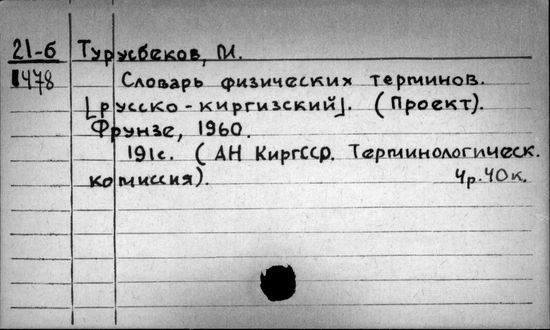 21-б Турусбеков, М.
1478 Словарь физических терминов.
[русско-киргизский]. (Проект).
Фрунзе, 1960.
191с. (АН КиргССР. Терминологическ.
комиссия). 4р.40к.